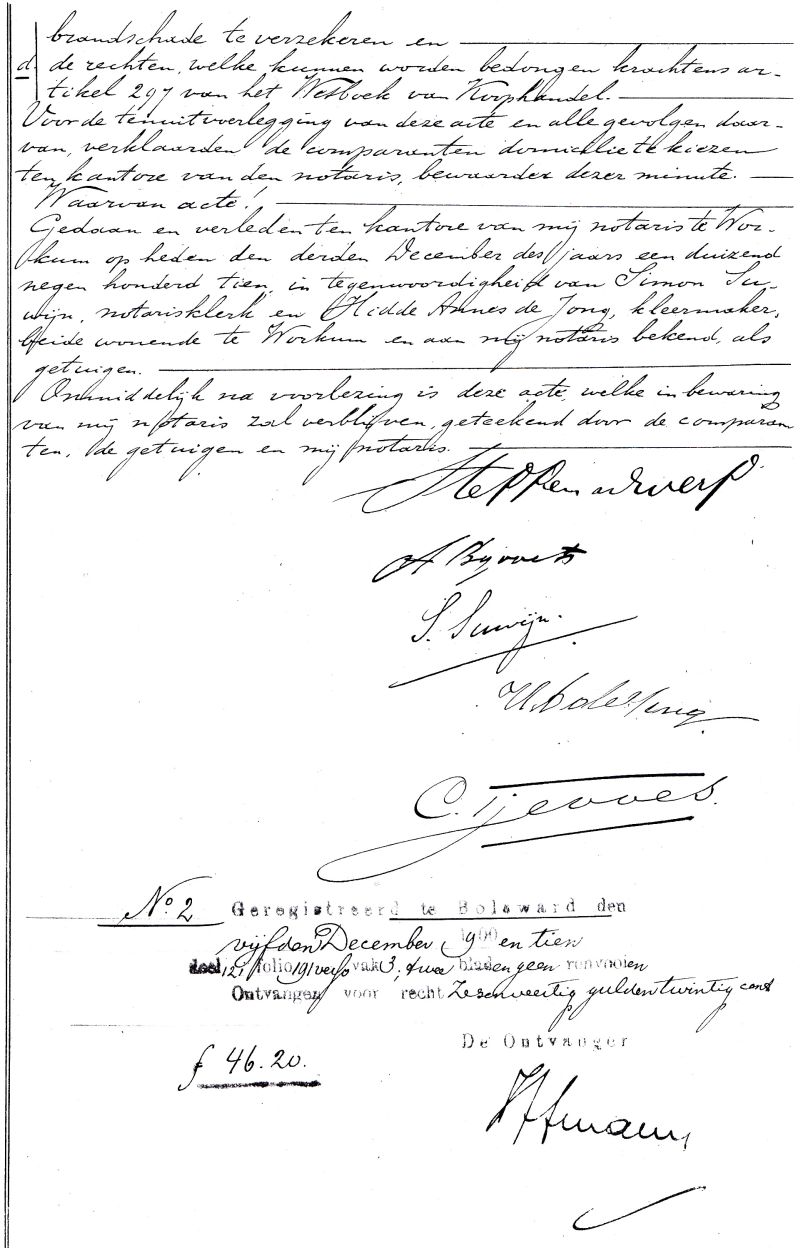 brandschade te verzekeren en
d. de rechten, welke kunnen worden bedongen krachtens ar-
tikel 297 van het Wetboek van Koophandel.
Voor de tenuitvoerlegging van deze acte en alle gevolgen daar-
van, verklaarden de comparanten domicilie te kiezen
ten kantore van den notaris, bewaarder dezer minute.
Waarvan acte!
Gedaan en verleden ten kantore van mij notaris te Wor-
kum op heden den derden December des jaars een duizend
negen honderd tien, in tegenwoordigheid van Simon Su-
wijn, notarisklerk en Hidde Annes de Jong, kleermaker,
beide wonende te Workum en aan mij notaris bekend, als
getuigen.
Onmiddelijk na voorlezing is deze acte, welke in bewaring
van mij notaris zal verblijven, geteekend door de comparan
ten, de getuigen en mij notaris.
S. Suwijn.
C. Tjebbes.
No. 2 Geregistreerd te Bolsward den
vijfden December 1900 en tien
deel 121 folio 191 verso vak 3, twee bladen geen renvooien
Ontvangen voor recht Zesenveertig gulden twintig cent
De Ontvanger
f 46.20.